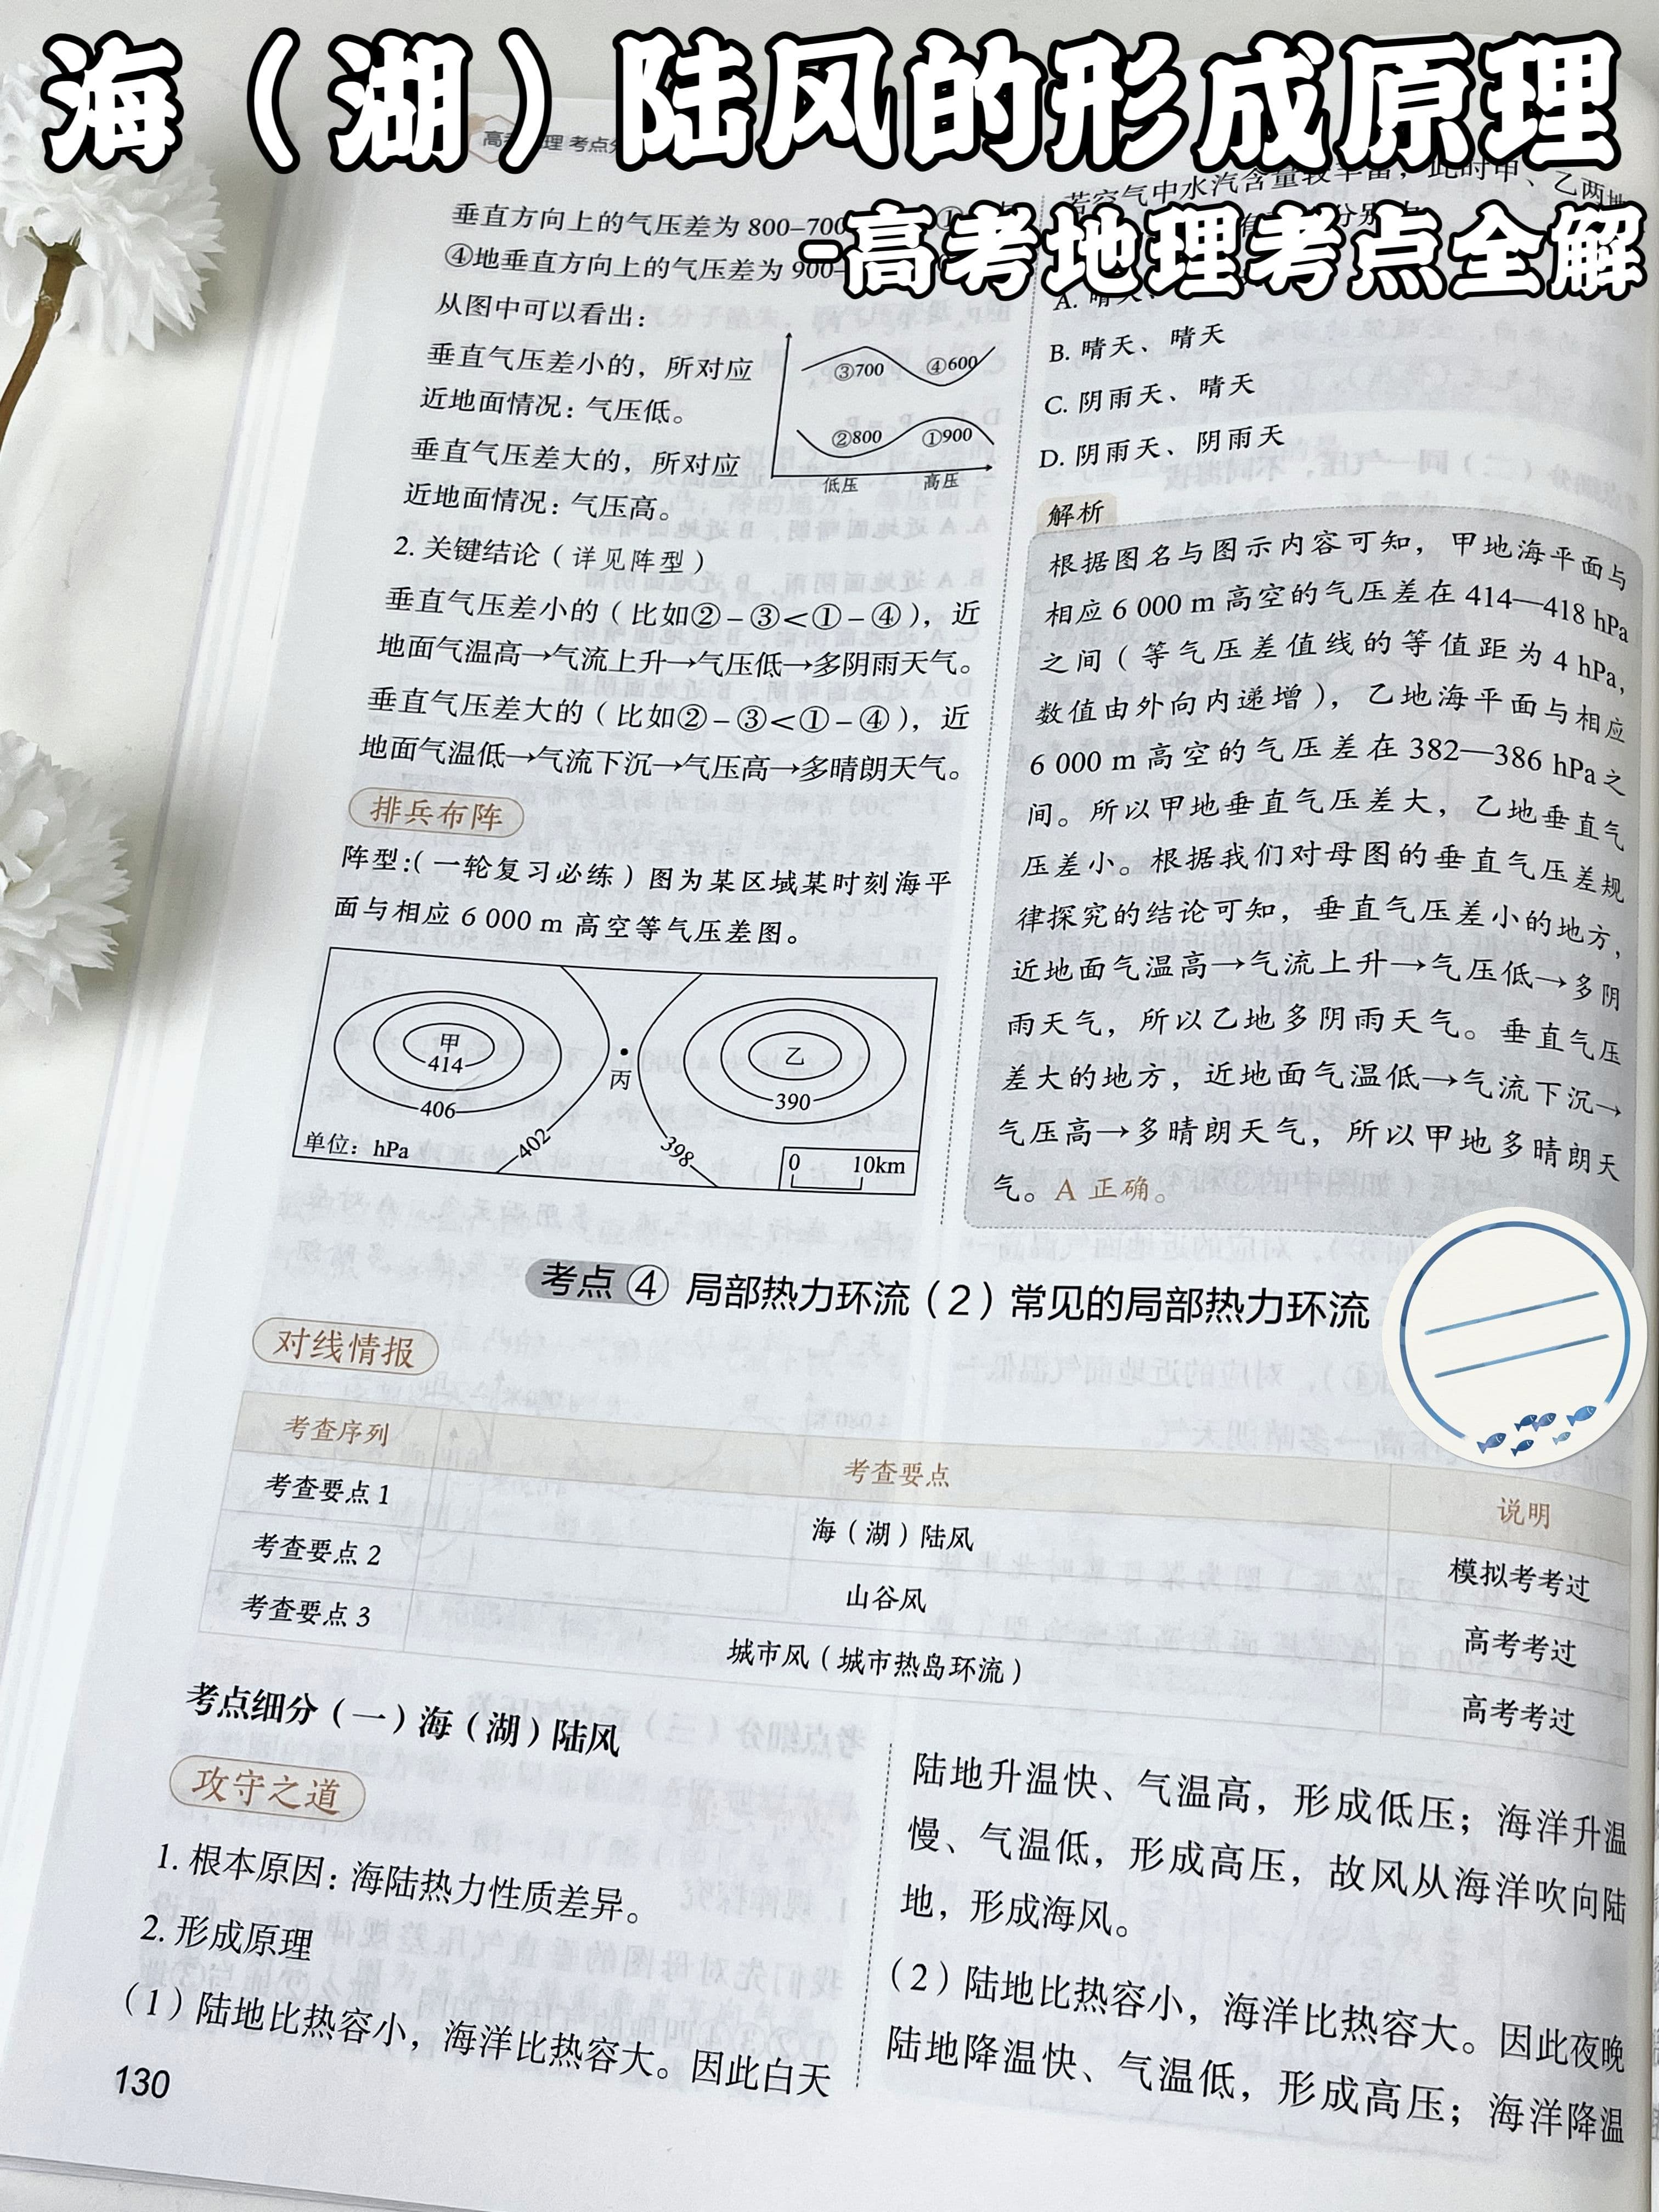 海（湖）陆风的形成原理
-高考地理考点全解
垂直方向上的气压差为 800–700
④地垂直方向上的气压差为 900–
从图中可以看出：
垂直气压差小的，所对应
近地面情况：气压低。
垂直气压差大的，所对应
近地面情况：气压高。
③700 ④600
②800 ①900
低压 高压
2. 关键结论（详见阵型）
垂直气压差小的（比如②–③<①–④），近
地面气温高→气流上升→气压低→多阴雨天气。
垂直气压差大的（比如②–③<①–④），近
地面气温低→气流下沉→气压高→多晴朗天气。
排兵布阵
阵型：（一轮复习必练）图为某区域某时刻海平
面与相应 6 000 m 高空等气压差图。
甲
414
406
402
丙
398
乙
390
单位：hPa
0 10km
若空气中水汽含量较丰富，此时甲、乙两地
A. 晴天、
B. 晴天、晴天
C. 阴雨天、晴天
D. 阴雨天、阴雨天
解析
根据图名与图示内容可知，甲地海平面与
相应 6 000 m 高空的气压差在 414—418 hPa
之间（等气压差值线的等值距为 4 hPa，
数值由外向内递增），乙地海平面与相应
6 000 m 高空的气压差在 382—386 hPa 之
间。所以甲地垂直气压差大，乙地垂直气
压差小。根据我们对母图的垂直气压差规
律探究的结论可知，垂直气压差小的地方，
近地面气温高→气流上升→气压低→多阴
雨天气，所以乙地多阴雨天气。垂直气压
差大的地方，近地面气温低→气流下沉→
气压高→多晴朗天气，所以甲地多晴朗天
气。A 正确。
考点④ 局部热力环流（2）常见的局部热力环流
对线情报
考查序列 考查要点 说明
考查要点 1 海（湖）陆风 模拟考考过
考查要点 2 山谷风 高考考过
考查要点 3 城市风（城市热岛环流） 高考考过
考点细分（一）海（湖）陆风
攻守之道
1. 根本原因：海陆热力性质差异。
2. 形成原理
（1）陆地比热容小，海洋比热容大。因此白天
陆地升温快、气温高，形成低压；海洋升温
慢、气温低，形成高压，故风从海洋吹向陆
地，形成海风。
（2）陆地比热容小，海洋比热容大。因此夜晚
陆地降温快、气温低，形成高压；海洋降温
130